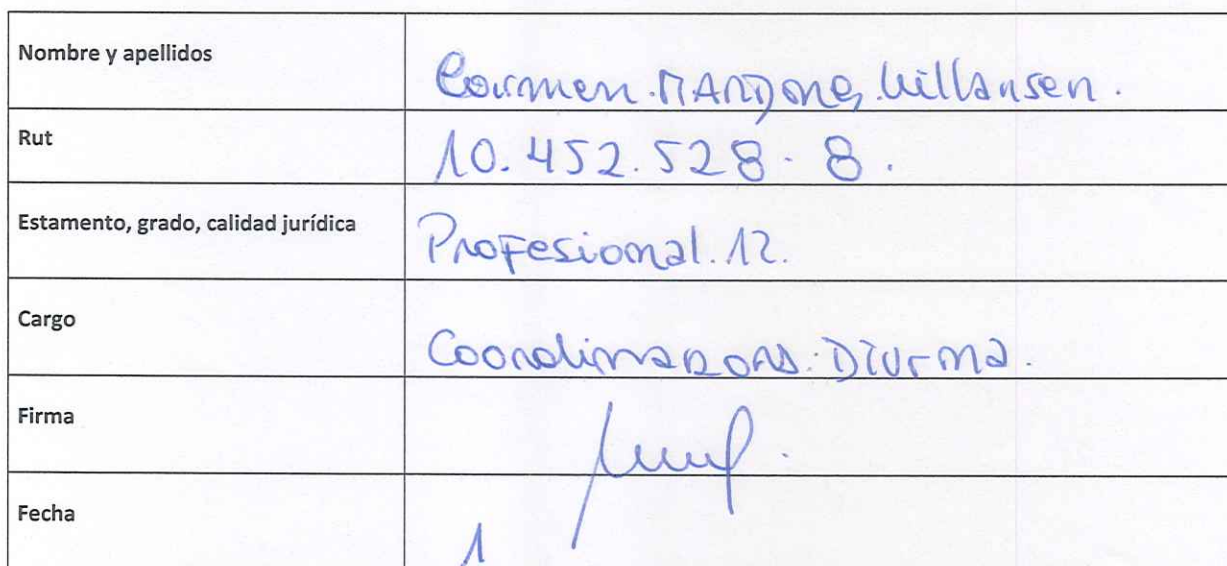 Nombre y apellidos
Carmen. MARDONES Willansen.
Rut
10.452.528-8.
Estamento, grado, calidad jurídica
Profesional. 12.
Cargo
Coordinadora. Diurna.
Firma
Fecha
1